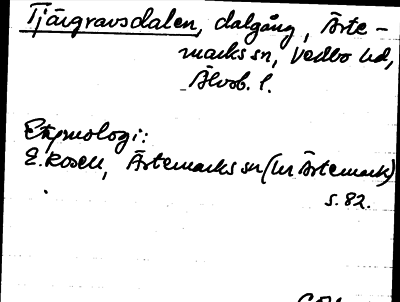 Tjärgravsdalen, dalgång, Ärte-
marks sn, Vedbo hd,
Älvsb. l.
Etymologi:
E. Rosell, Ärtemarks sn (ur Ärtemark)
s. 82.